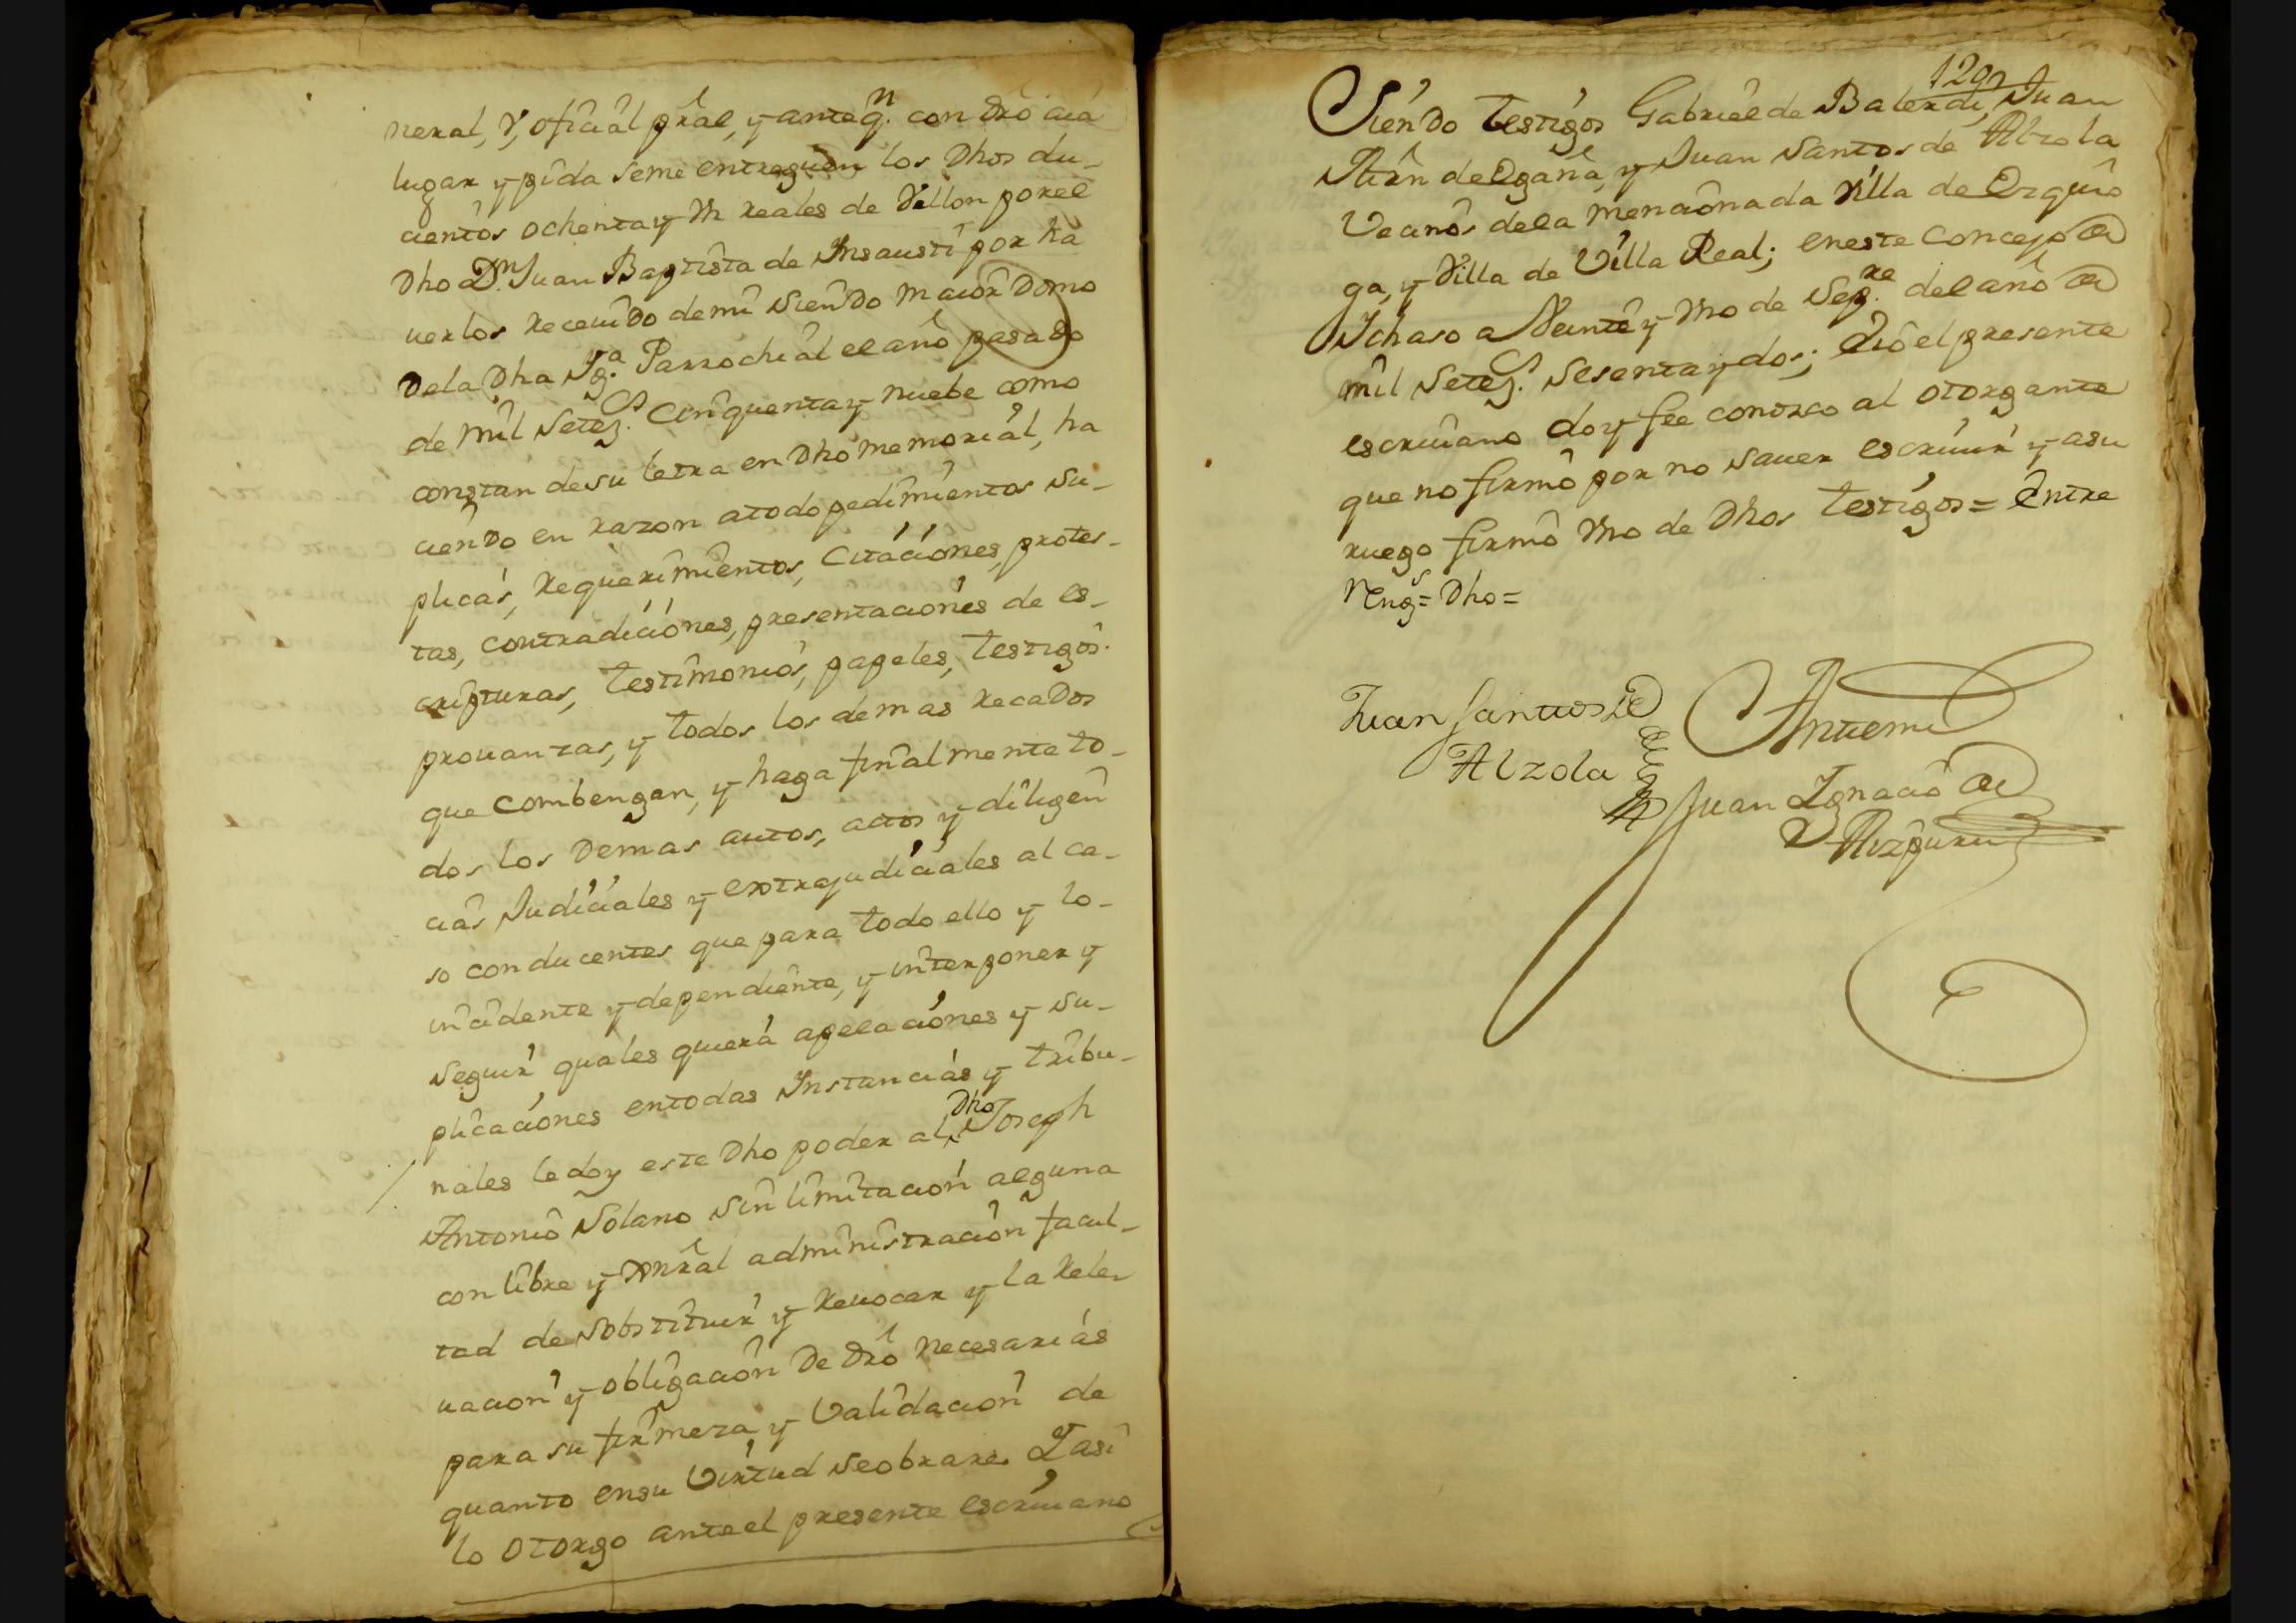 neral, y, oficial pral, y ante qn. con dro aia
lugar y pida seme entreguen los Dhos du-
cientos ochenta y un reales de Vellon por el
Dho Dn. Juan Baptista de Insausti por ha
uerlos receuido de mi siendo maiordomo
dela Dha Yga. Parrochial el año pasado
de mil setezs. cinquenta y nuebe como
constan de su letra en Dho memorial, ha
ciendo en razon a todo pedimientos su-
plicas, requerimientos, citaciones, protes-
tas, contradiciones, presentaciones de es-
cripturas, testimonios, papeles, testigos.
prouanzas, y todos los demas recados
que combengan, y haga finalmente to-
dos los demas autos, actos y diligen
cias Judiciales y extrajudiciales al ca-
so conducentes que para todo ello y lo-
incidente y dependiente, y interponer y
seguir quales quiera apelaciones y su-
plicaciones entodas Instancias y tribu-
nales le doy este Dho poder al Dho Joseph
Antonio Solano sin limitacion alguna
con libre y xnral administracion facul-
tad de sobstituir y reuocar y la rele-
uacion y obligacion de dro necesarias
para su firmeza y validacion de
quanto ensu virtud se obrare. Y asi
lo otorgo anteel presente escriuano
129
Siendo testigos Gabriel de Balerdi, Juan
Mrn de Egaña, y Juan Santos de Alzola
Vecinos dela mencionada Villa de Ezquio
ga, y Villa de Villa Real; eneste concejo de
Ichaso a Veinte y uno de Sepre. del año de
mil setezs. sesenta y dos; e Yo el presente
escriuano doy fee conozco al otorgante
que no firmo por no sauer escriuir y asu
ruego firmo uno de Dhos testigos = Entre
Rengs = Dho =
Juan Santos de
Alzola
Antemi
Juan Ignacio de
Aizpuru